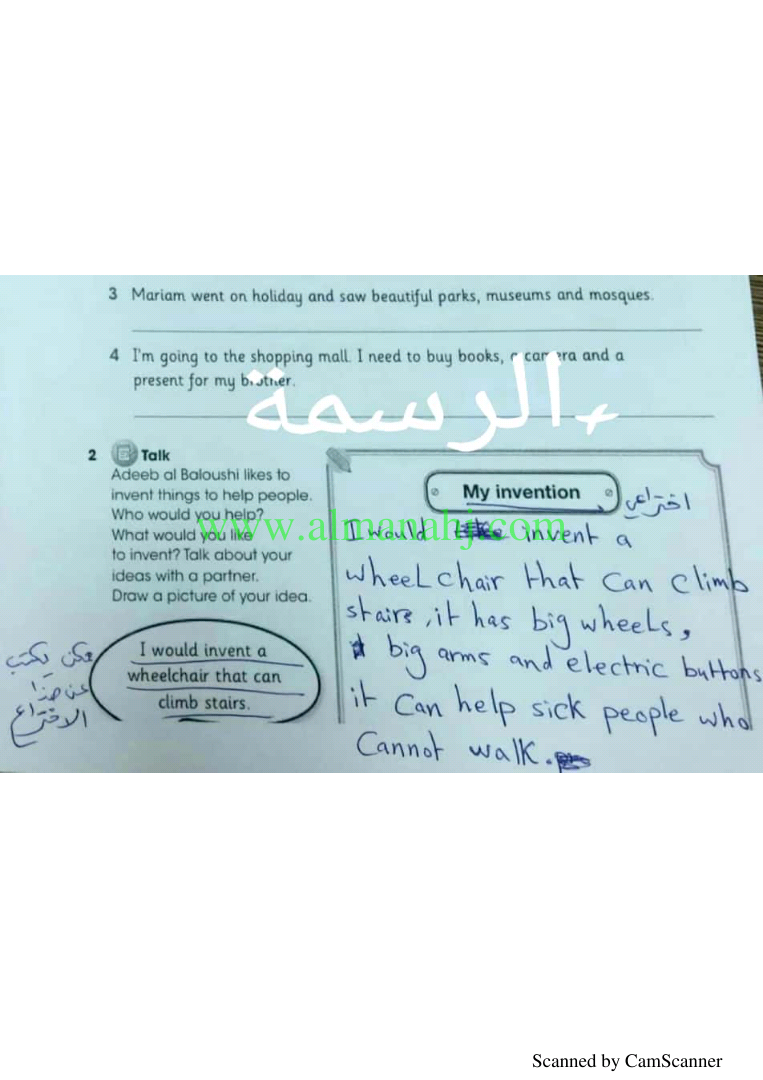 3 Mariam went on holiday and saw beautiful parks, museums and mosques.
4 I'm going to the shopping mall. I need to buy books, a camera and a
present for my brother.
الرسمة
2 Talk
Adeeb al Baloushi likes to
invent things to help people.
Who would you help?
What would you like
to invent? Talk about your
ideas with a partner.
Draw a picture of your idea.
I would invent a
wheelchair that can
climb stairs.
يمكن يكتب
عن هذا
الاختراع
My invention
اختراعي
www.almanahj.com
I would invent a
wheel chair that can climb
stairs, it has big wheels,
big arms and electric buttons
it can help sick people who
cannot walk.
Scanned by CamScanner